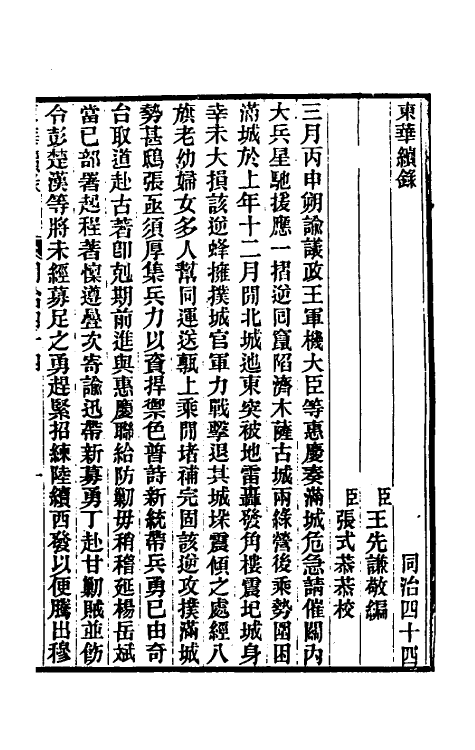 東華續錄 同治四十四
臣王先謙敬編
臣張式恭恭校
三月丙申朔諭議政王軍機大臣等惠慶奏滿城危急請催關內
大兵星馳援應一摺逆回竄陷濟木薩古城兩綠營後乘勢圍困
滿城於上年十二月閒北城迤東突被地雷轟發角樓震圮城身
幸未大損該逆蜂擁撲城官軍力戰擊退其城垛震傾之處經八
旗老幼婦女多人幫同運送甎土乘閒堵補完固該逆攻撲滿城
勢甚鴟張亟須厚集兵力以資捍禦色普詩新統帶兵勇已由奇
台取道赴古著卽剋期前進與惠慶聯絡防勦毋稍稽延楊岳斌
當已部署起程著懍遵疊次寄諭迅帶新募勇丁赴甘勦賊並飭
令彭楚漢等將未經募足之勇趕緊招練陸續西發以便騰出穆